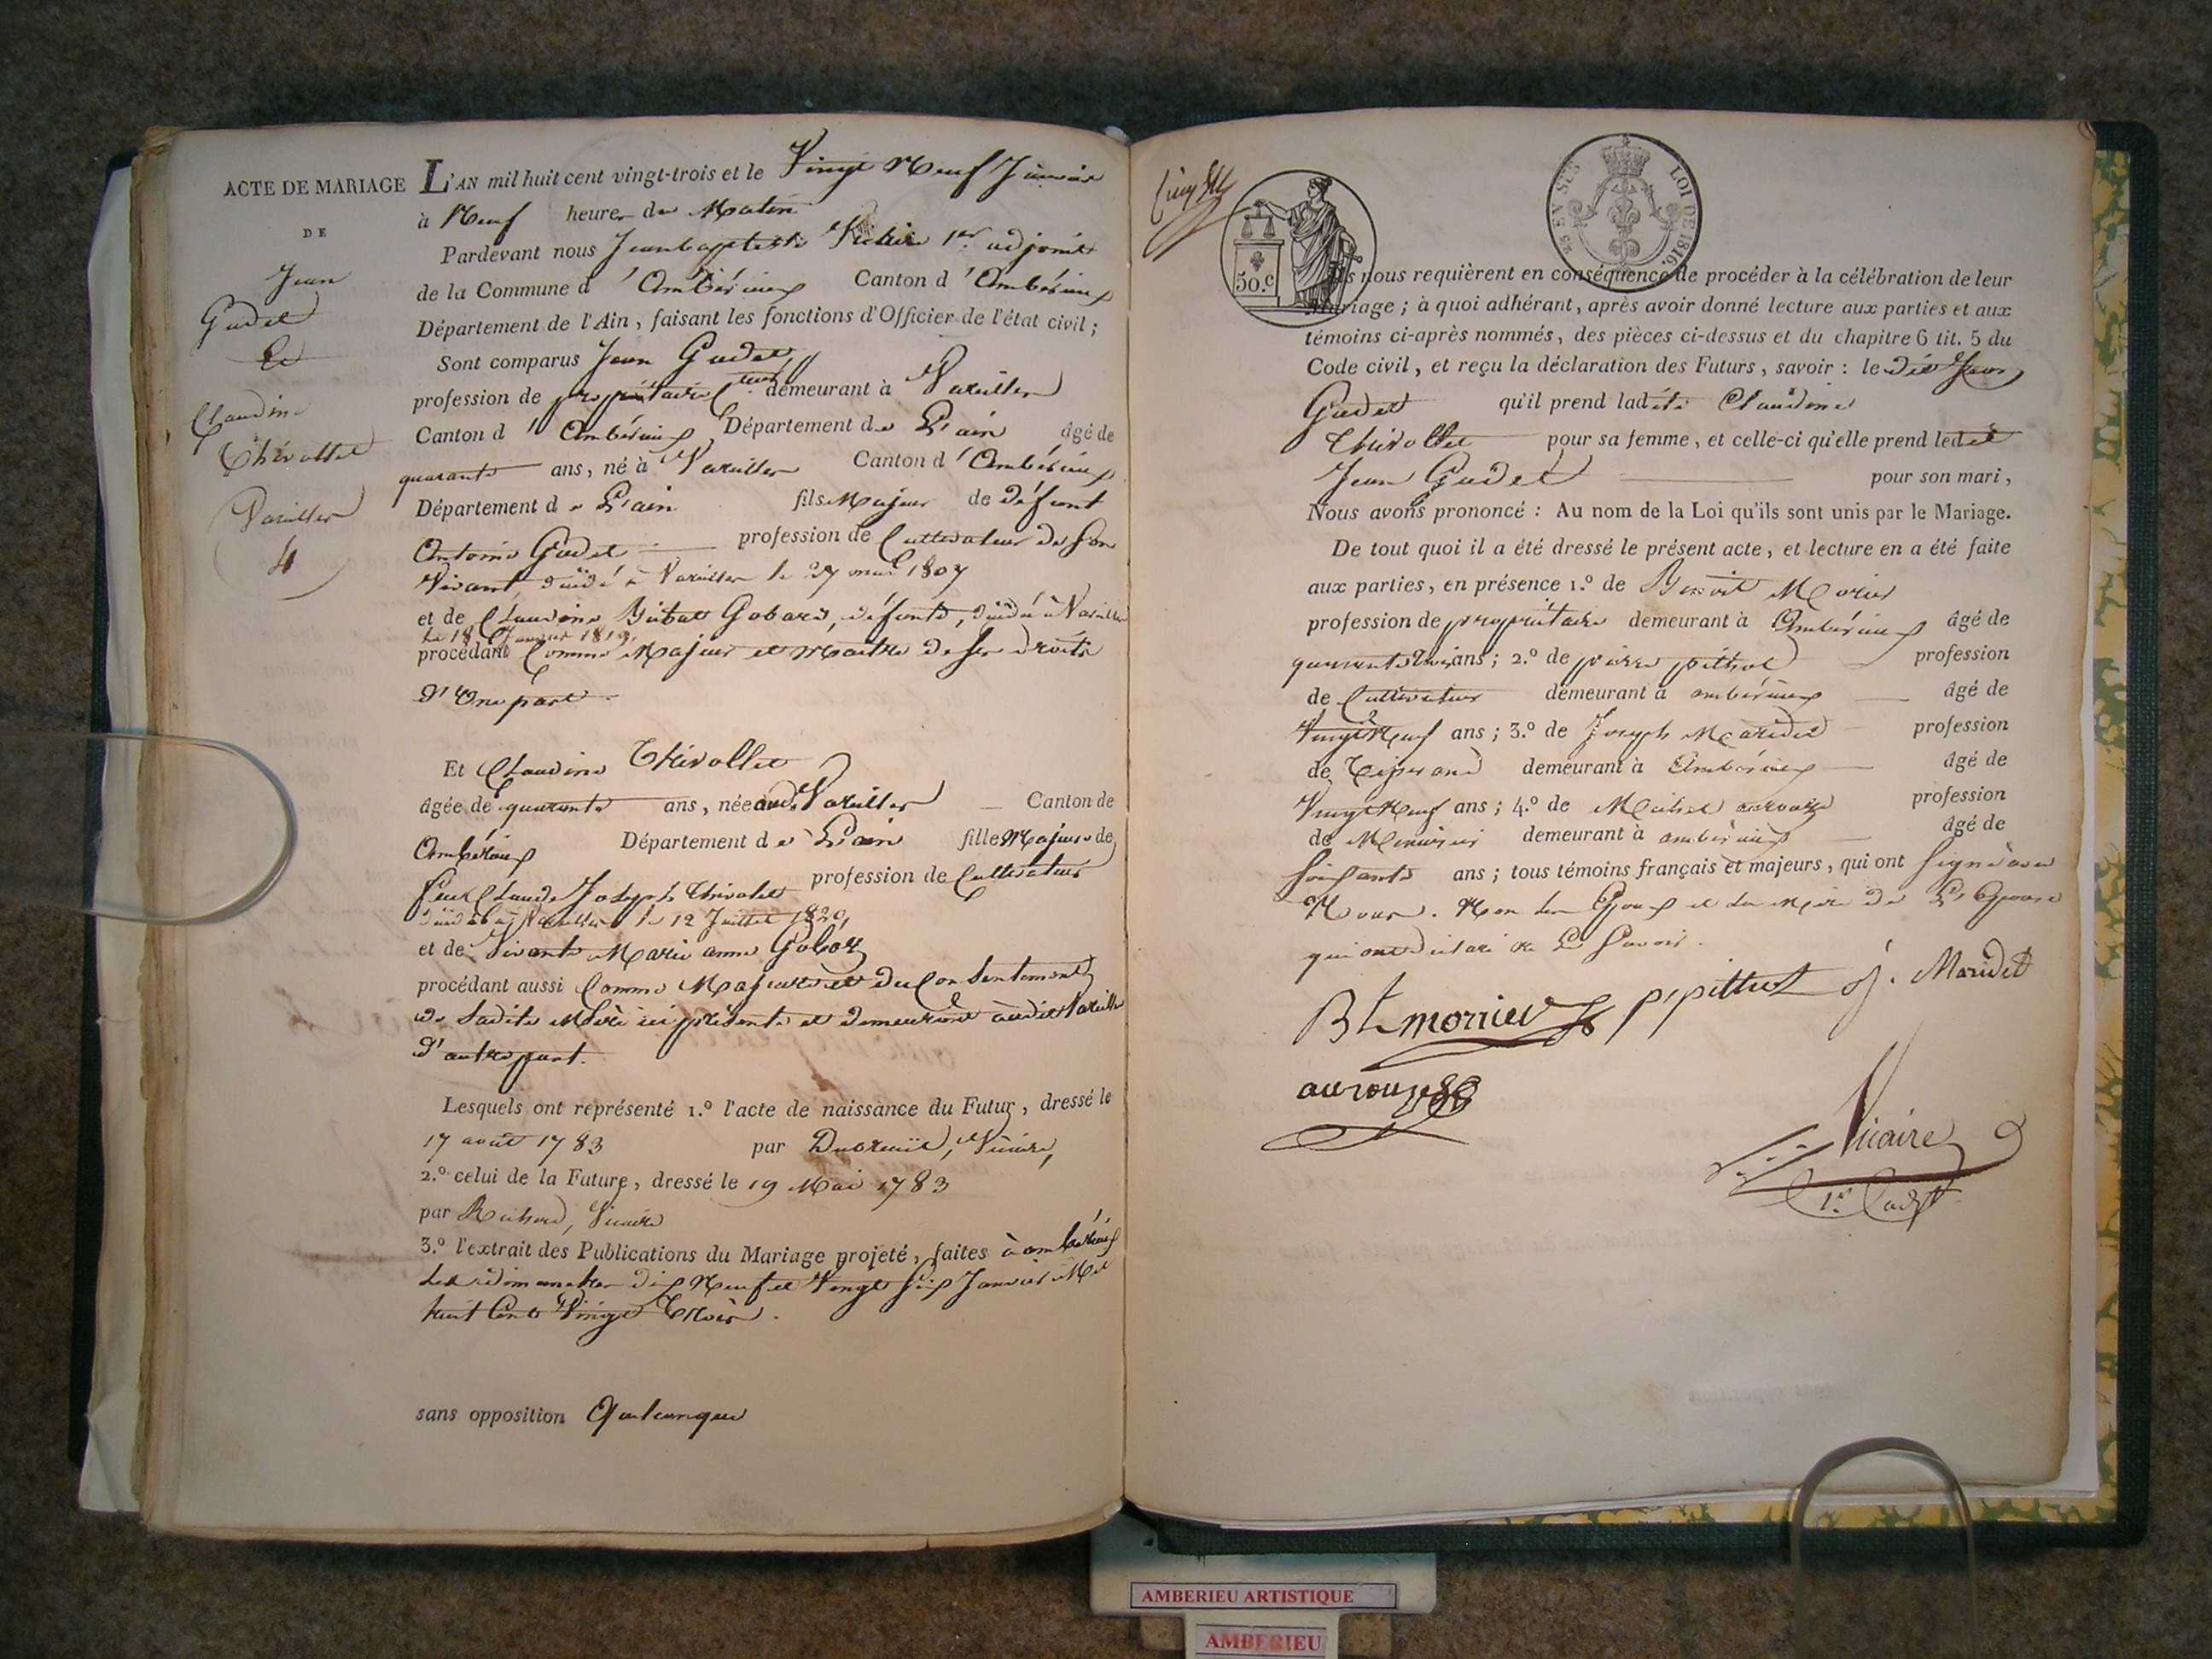 ACTE DE MARIAGE
DE
Jean
Gudet
Et
Claudine
Thévollet
Vareilles
4
L'AN mil huit cent vingt-trois et le Vingt Neuf Janvier
à Neuf heures du Matin
Pardevant nous Jeanbaptiste Vicaire 1er adjoint
de la Commune d'Ambérieux Canton d'Ambérieux
Département de l'Ain, faisant les fonctions d'Officier de l'état civil;
Sont comparus Jean Gudet,
profession de propriétaire demeurant à Vareilles
Canton d'Ambérieux Département de L'ain âgé de
quarante ans, né à Vareilles Canton d'Ambérieux
Département de L'ain fils Majeur de défunt
Antoine Gudet profession de Cultivateur de son
Vivant, décédé à Vareilles le 27 mai 1807
et de Claudine Gobard, défunte, décédée à Vareilles
le 18 Janvier
procédant Comme Majeur et maitre de ses droits
D'Une part
Et Claudine Thévollet
âgée de quarante ans, née aud. Vareilles Canton de
Ambérieux Département de L'ain fille Majeure de
feu Claude Joseph Thévolet profession de Cultivateur
décédé à Vareilles le 12 Juillet 1820,
et de Vivante Marie anne Goboz
procédant aussi Comme Majeure et du Consentement
de Sadite Mère ici présente et demeurant audit Vareilles
D'autre part.
Lesquels ont représenté 1.º l'acte de naissance du Futur, dressé le
17 août 1783 par Dubreuil, Vicaire,
2.º celui de la Future, dressé le 19 Mai 1783
par Richard, Vicaire
3.º l'extrait des Publications du Mariage projeté, faites à ambérieux
Les dimanches dix Neuf et Vingt Six Janvier Mil
huit Cent Vingt Trois.
sans opposition Quelconque
50.c
25 EN SUS
LOI DE 1816.
Ils nous requièrent en conséquence de procéder à la célébration de leur
mariage; à quoi adhérant, après avoir donné lecture aux parties et aux
témoins ci-après nommés, des pièces ci-dessus et du chapitre 6 tit. 5 du
Code civil, et reçu la déclaration des Futurs, savoir: le dit Jean
Gudet qu'il prend ladite Claudine
Thévollet pour sa femme, et celle-ci qu'elle prend ledit
Jean Gudet pour son mari,
Nous avons prononcé: Au nom de la Loi qu'ils sont unis par le Mariage.
De tout quoi il a été dressé le présent acte, et lecture en a été faite
aux parties, en présence 1.º de Benoit Morier
profession de propriétaire demeurant à Ambérieux âgé de
quarante trois ans; 2.º de pierre pittiot profession
de Cultivateur demeurant à ambérieux âgé de
Vingt Neuf ans; 3.º de Joseph Maridet profession
de Tisserand demeurant à Ambérieux âgé de
Vingt Neuf ans; 4.º de Michel aurouze profession
de Menuisier demeurant à ambérieux âgé de
Soixante ans; tous témoins français et majeurs, qui ont Signé avec
Nous. Non les Epoux et La Mère de L'Epouse
qui ont déclaré ne Le Savoir.
Bt morrier p pittiot j. Maridet
aurouze
Vicaire
1er adjt
AMBERIEU ARTISTIQUE
AMBERIEU